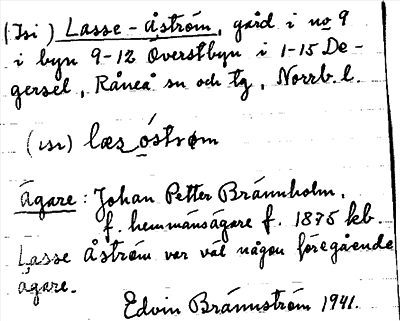 (Isi) Lasse-Åström, gård i no 9
i byn 9-12 Överstbyn i 1-15 De-
gersel, Råneå sn och tg, Norrb. l.
(ɪsɪ) læs óstrøm
Ägare: Johan Petter Brännholm,
f. hemmansägare f. 1875 kb.
Lasse Åström var väl någon föregående
ägare.
Edvin Brännström 1941.